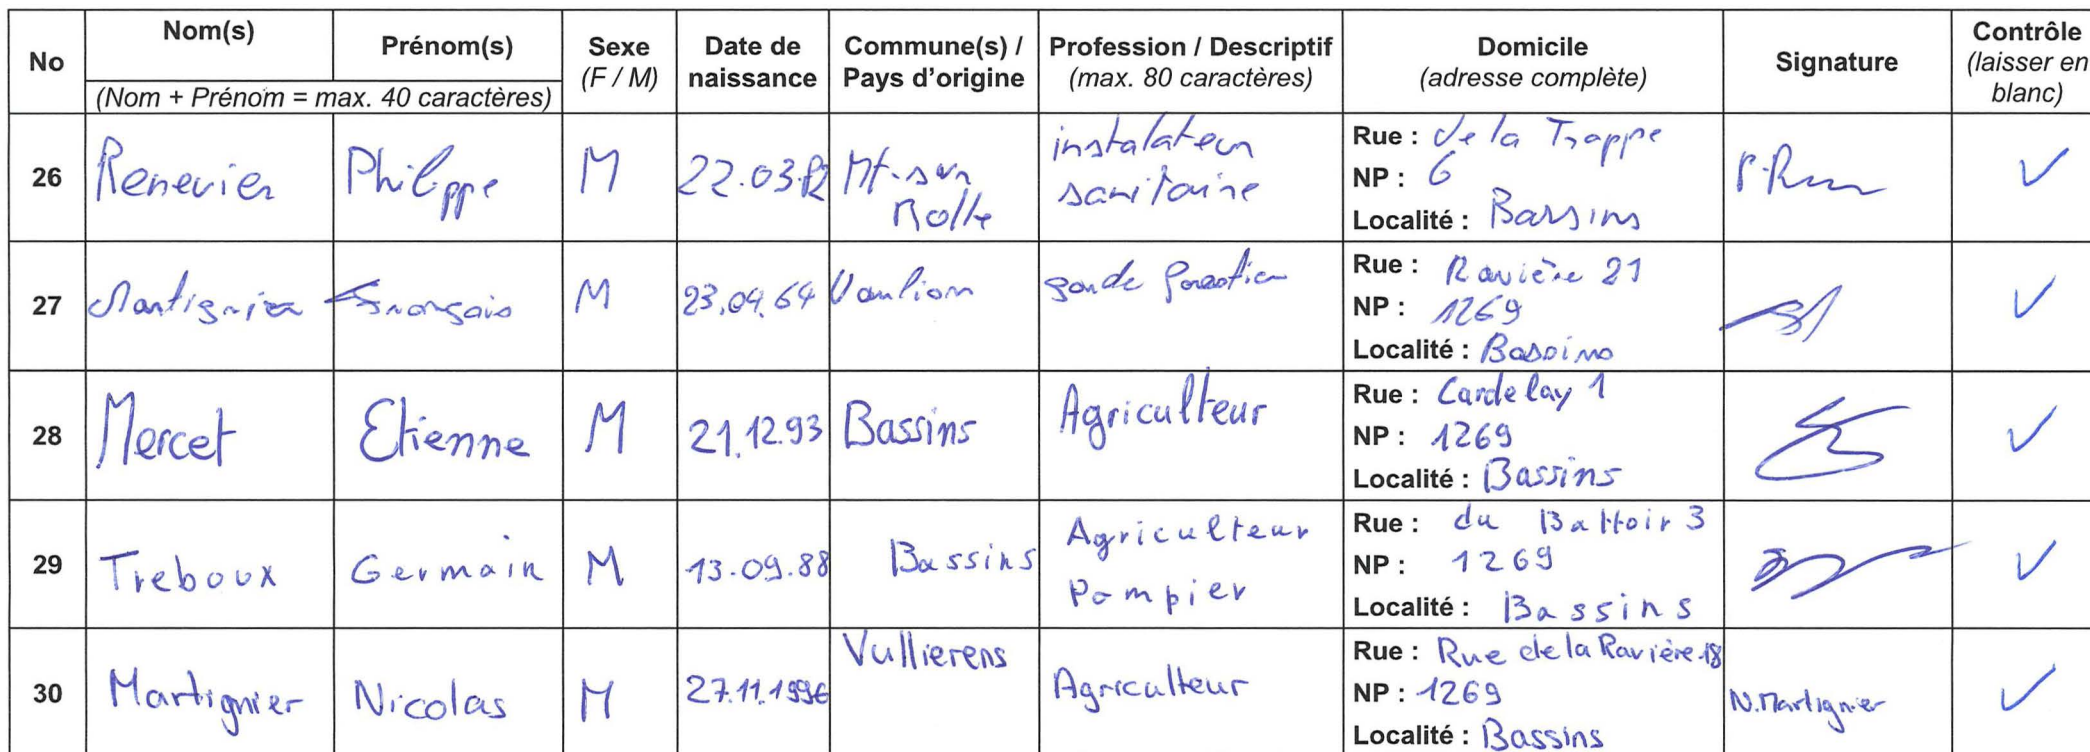 No Nom(s) Prénom(s) Sexe (F / M) Date de naissance Commune(s) / Pays d'origine Profession / Descriptif (max. 80 caractères) Domicile (adresse complète) Signature Contrôle (laisser en blanc)
(Nom + Prénom = max. 40 caractères)
26 Renevier Philippe M 22.03.82 Mt-sur Rolle instalateur sanitaire
Rue : de la Trappe
NP : 6
Localité : Bassins
27 Martignier François M 23.04.64 Vaulion garde forestier
Rue : Ravière 21
NP : 1269
Localité : Bassins
28 Mercet Etienne M 21.12.93 Bassins Agriculteur
Rue : Cardelay 1
NP : 1269
Localité : Bassins
29 Treboux Germain M 13.09.88 Bassins Agriculteur Pompier
Rue : du Battoir 3
NP : 1269
Localité : Bassins
30 Martignier Nicolas M 27.11.1996 Vullierens Agriculteur
Rue : Rue de la Ravière 18
NP : 1269
Localité : Bassins
N. Martignier